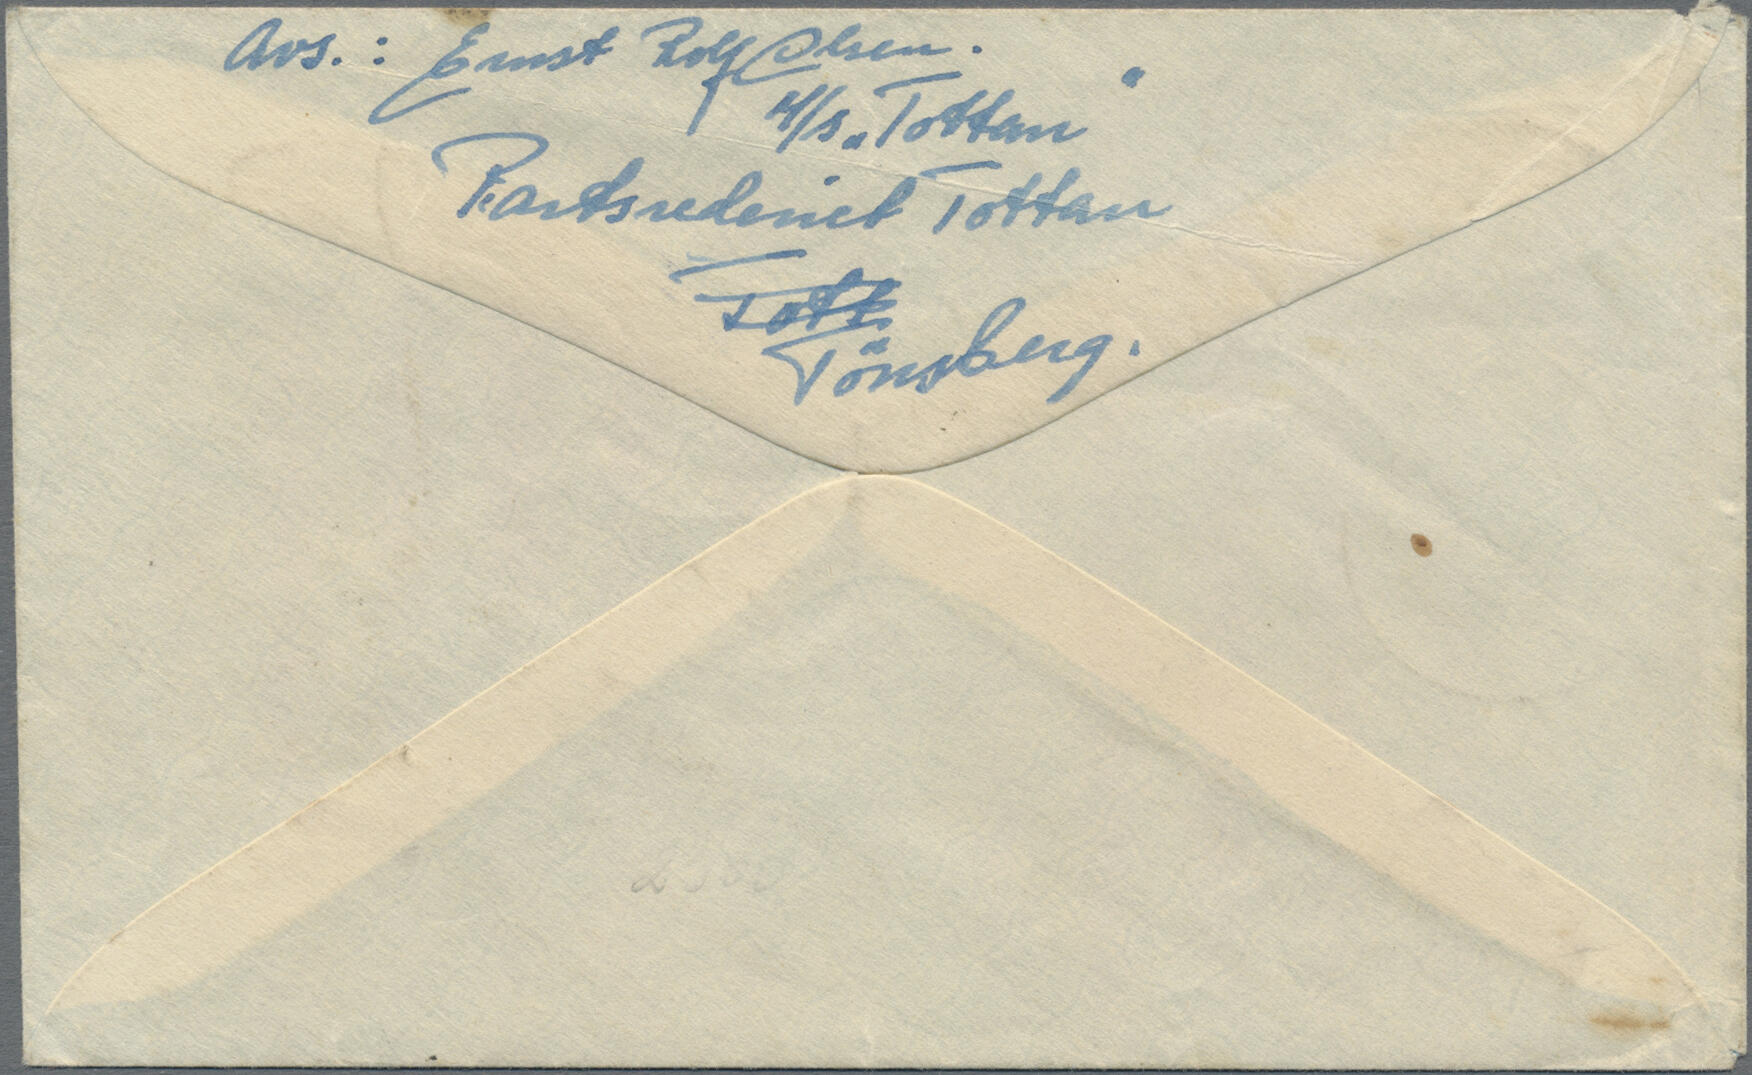 Avs.: Ernst Rolf Olsen.
M/s „Tottan"
Partsrederiet Tottan
Tott
Tönsberg.
2500